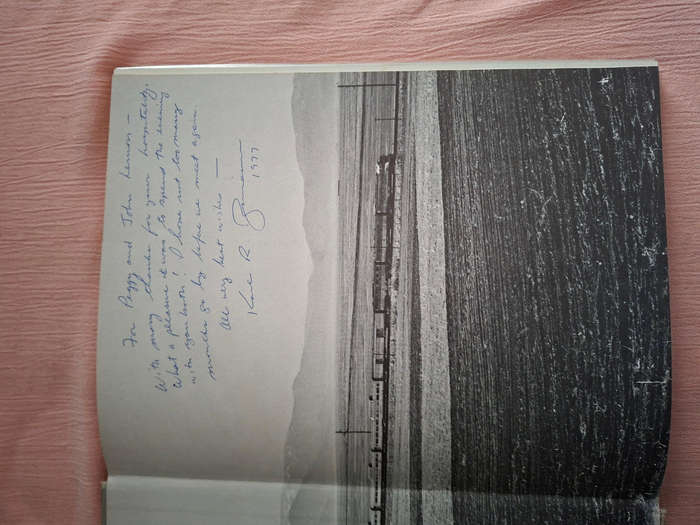 For Peggy and John Lemon –
With many thanks for your hospitality.
What a pleasure it was to spend the evening
with you both! I hope not too many
months go by before we meet again.
All very best wishes —
Karl R.
1977